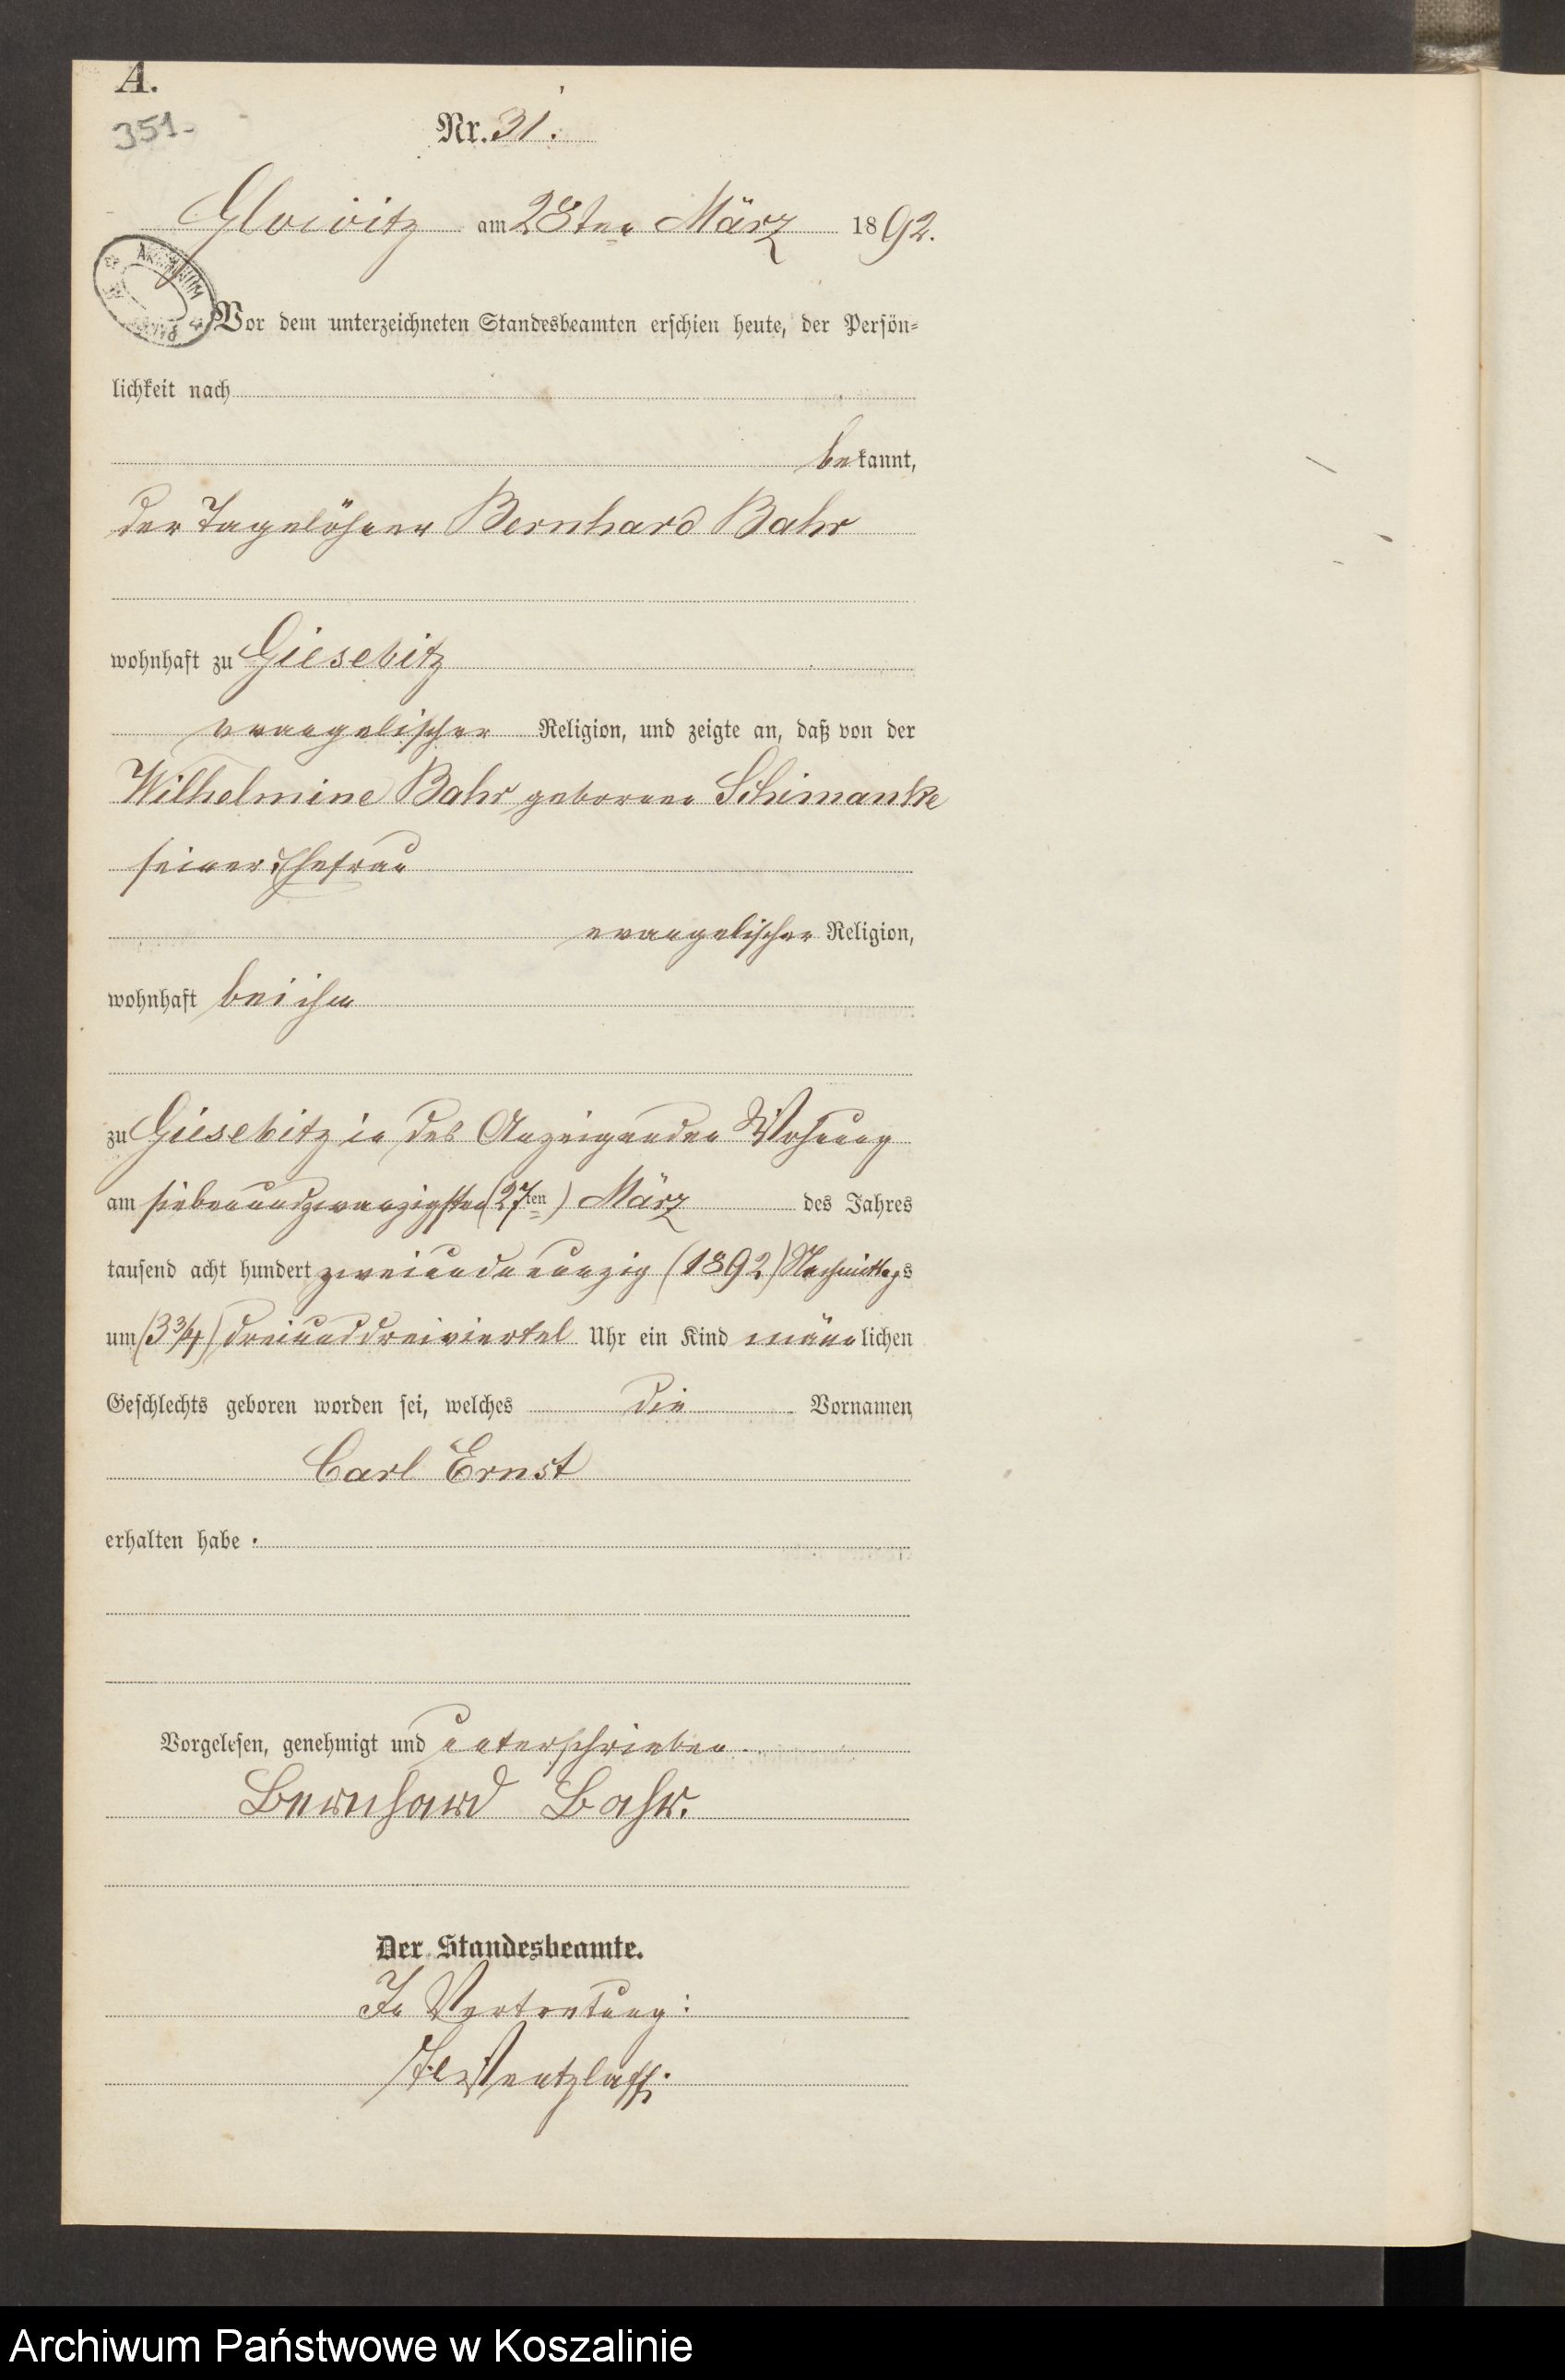 A.
351.
Nr. 31.
Glowitz am 28ten März 1892.
ARCHIWUM
Vor dem unterzeichneten Standesbeamten erschien heute, der Persön-
lichkeit nach
bekannt,
der Tagelöhner Bernhard Bahr
wohnhaft zu Giesebitz
evangelischer Religion, und zeigte an, daß von der
Wilhelmine Bahr geborene Schimanke
seiner Ehefrau
evangelischer Religion,
wohnhaft bei ihm
zu Giesebitz in des Anzeigenden Wohnung
am siebenundzwanzigsten (27ten) März des Jahres
tausend acht hundert zweiundneunzig (1892) Nachmittags
um (3 3/4) dreiunddreiviertel Uhr ein Kind männlichen
Geschlechts geboren worden sei, welches die Vornamen
Carl Ernst
erhalten habe.
Vorgelesen, genehmigt und unterschrieben.
Bernhard Bahr.
Der Standesbeamte.
In Vertretung:
Wentzlaff.
Archiwum Państwowe w Koszalinie